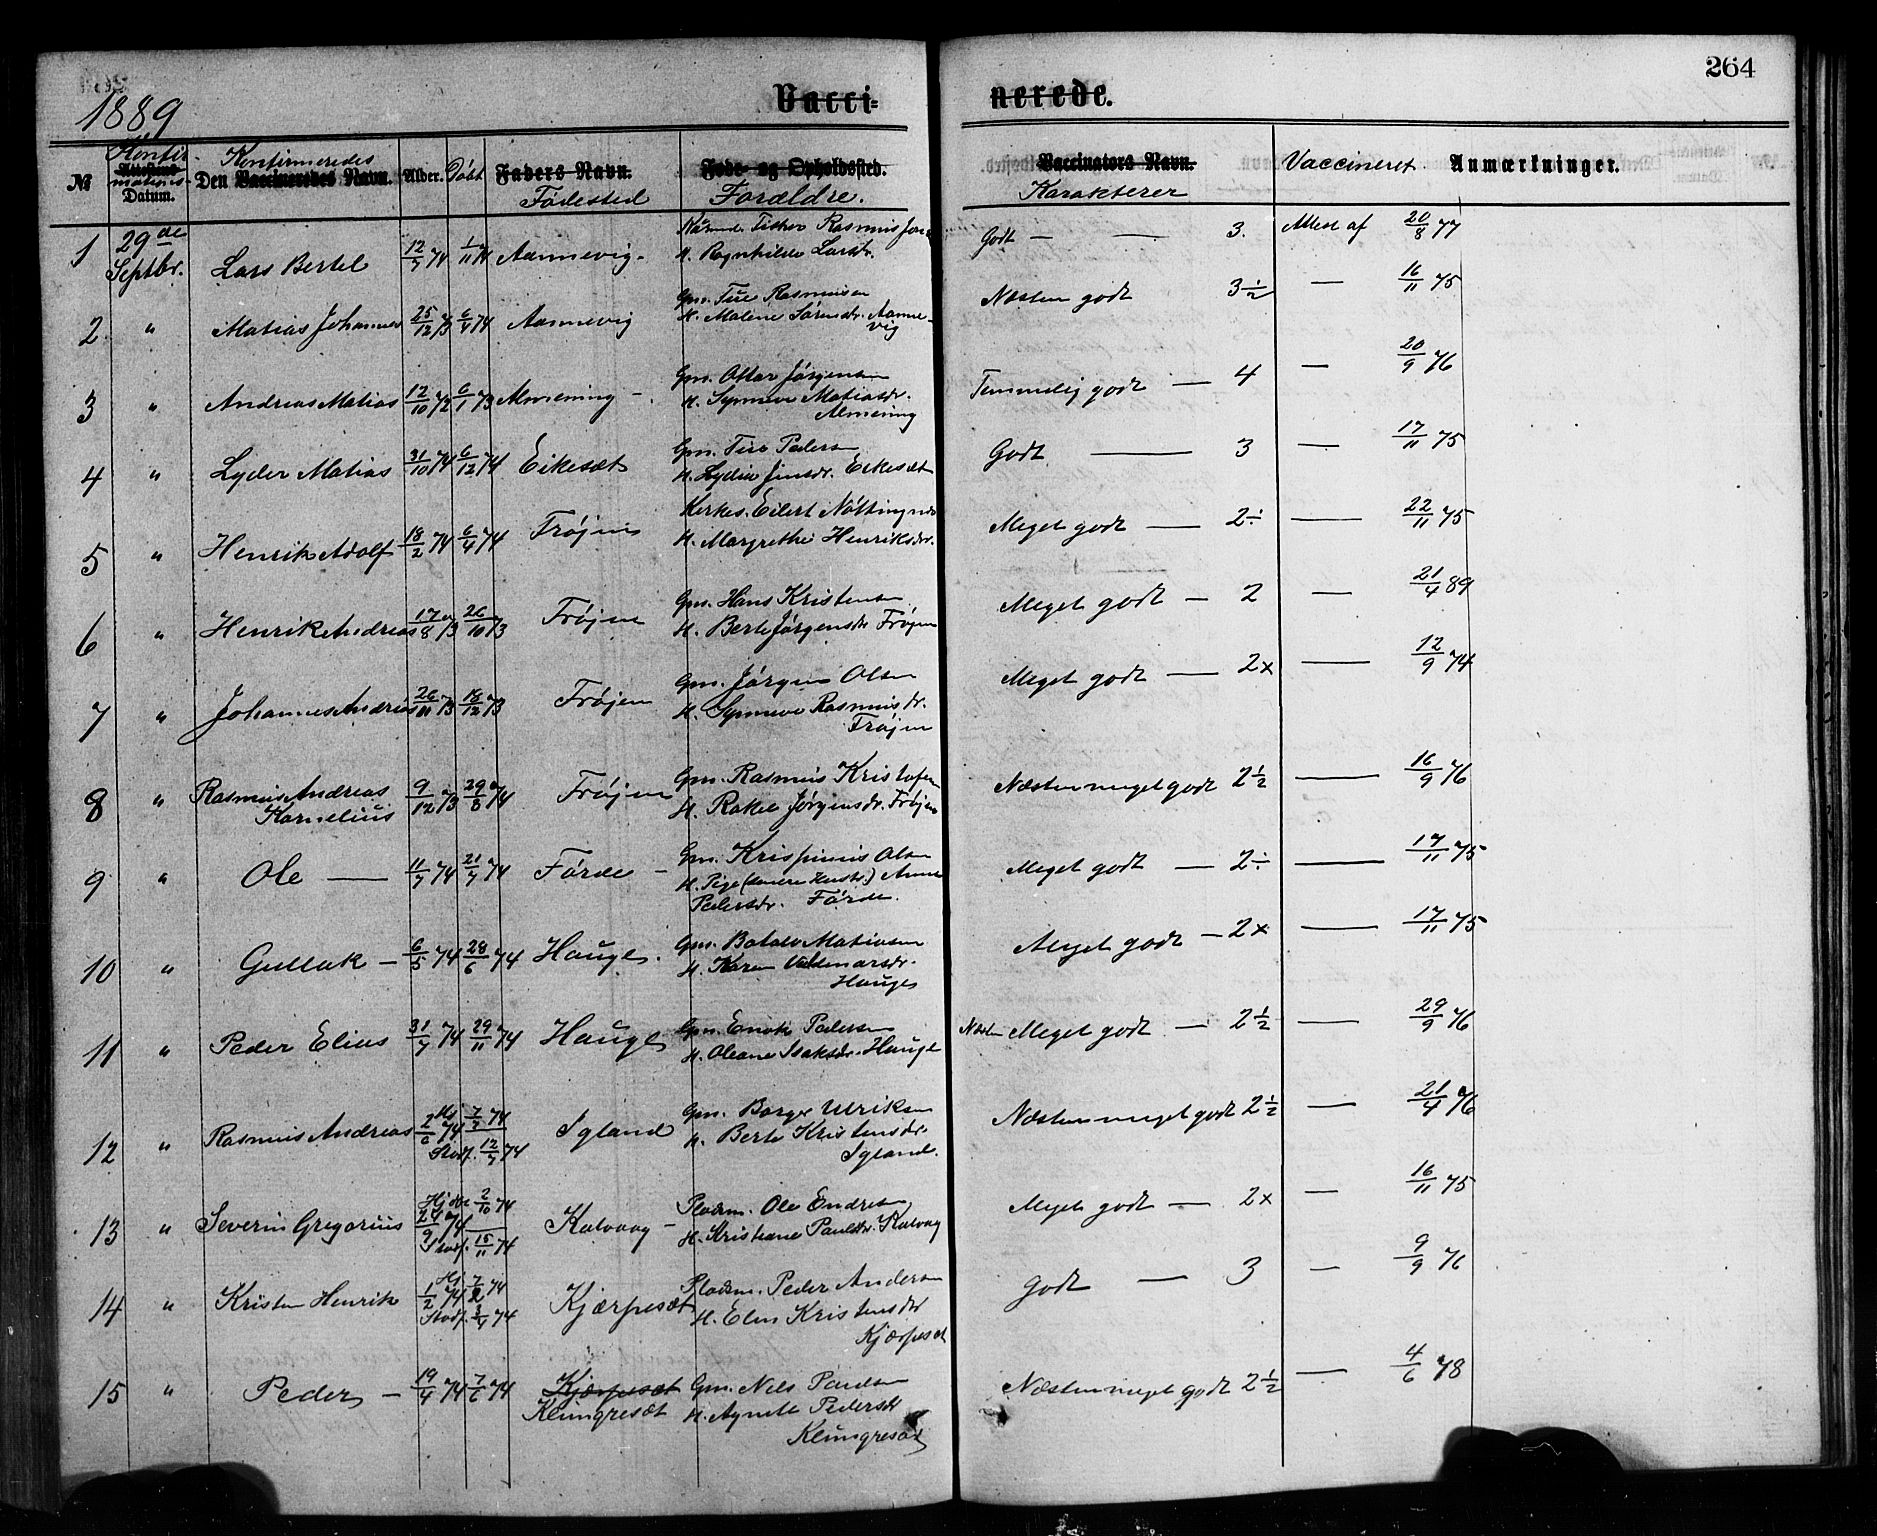 264
1889
Vaccinerede.
№ Konfirmations-Datum. Den Konfirmeredes Vaccineredes Navn. Alder. Døbt Faders Navn. Fødested Føde- og Opholdssted. Forældre. Vaccinators Navn. Karakterer Vaccineret Anmærkninger.
1 29de Septbr. Lars Bertel 12/7 74 1/11 74 Aannevig Fisker Rasmus
H. Ragnhilde Larsdr. Godt — 3. Attest af 20/8 77
2 " Matias Johannes 25/12 73 6/4 74 Aannevig Gm. Rasmusen
H. Malene Sørensdr. Aannevig Næsten godt 3½ — 16/11 75
3 " Andreas Matias 12/10 72 6/1 73 Almening Gm. Ottar Jørgensen
H. Synneve Matiasdr.
Almening Temmelig godt — 4 — 20/9 76
4 " Lyder Matias 31/10 74 6/12 74 Eikesæt Gm. Pedersen
H. Lydia Eikesæt Godt — 3 — 17/11 75
5 " Henrik Adolf 18/2 74 6/4 74 Frøjen Kirkes. Eilert
H. Margrethe Henriksdr. Meget godt — 2÷ — 22/11 75
6 " Henrik Andreas 17/8 73 26/10 73 Frøjen Gm. Hans Kristensen
H. Berte Jørgensdr Frøjen Meget godt — 2 — 21/4 89
7 " Johannes Andreas 26/11 73 18/12 73 Frøjen Gm. Jørgen Olsen
H. Synneve Rasmusdr.
Frøjen Meget godt — 2x — 12/9 74
8 " Rasmus Andreas
Kornelius 9/12 73 29/3 74 Frøjen Gm. Rasmus Kristofersen
H. Rakel Jørgensdr. Frøjen Næsten meget godt 2½ — 16/9 76
9 " Ole — 11/7 74 21/7 74 Førde — Gm. Krispinus Olsen
H. Pige (senere Hustr.) Anne
Pedersdr. Førde. Meget godt — 2÷ — 17/11 75
10 " Gullak — 6/5 74 28/6 74 Hauge. Gm. Botolv Matiasen
H. Karen Valdemarsdr.
Hauge Meget godt — 2x — 17/11 75
11 " Peder Elias 31/7 74 29/11 74 Hauge Gm. Enok Pedersen
H. Oleane Isaksdr. Hauge Næsten Meget godt — 2½ — 29/9 76
12 " Rasmus Andreas 2/6 74 Hj 7/7 74
Stadf. 12/7 74 Igland Gm. Børge Ulriksen
H. Berte Kristensdr.
Igland. Næsten meget godt 2½ — 21/4 76
13 " Severin Gregorius 24/9 74 Hjdbt 2/10 74
Stadf. 15/11 74 Kalvaag — Pladsm. Ole Endresen
H. Kristiane Paulsdr. Kalvaag Meget godt — 2x — 16/11 75
14 " Kristen Henrik 1/2 74 Hj 7/2 74
Stadf. 3/4 74 Kjærpesæt Pladsm. Peder Andersen
H. Elen Kristensdr
Kjærpesæt Godt — 3 — 9/9 76
15 " Peder — 19/4 74 7/6 74 Kjærpesæt
Klungresæt Gm. Nils Paulsen
H. Agnete Pedersdr
Klungresæt Næsten meget godt 2½ — 4/6 78